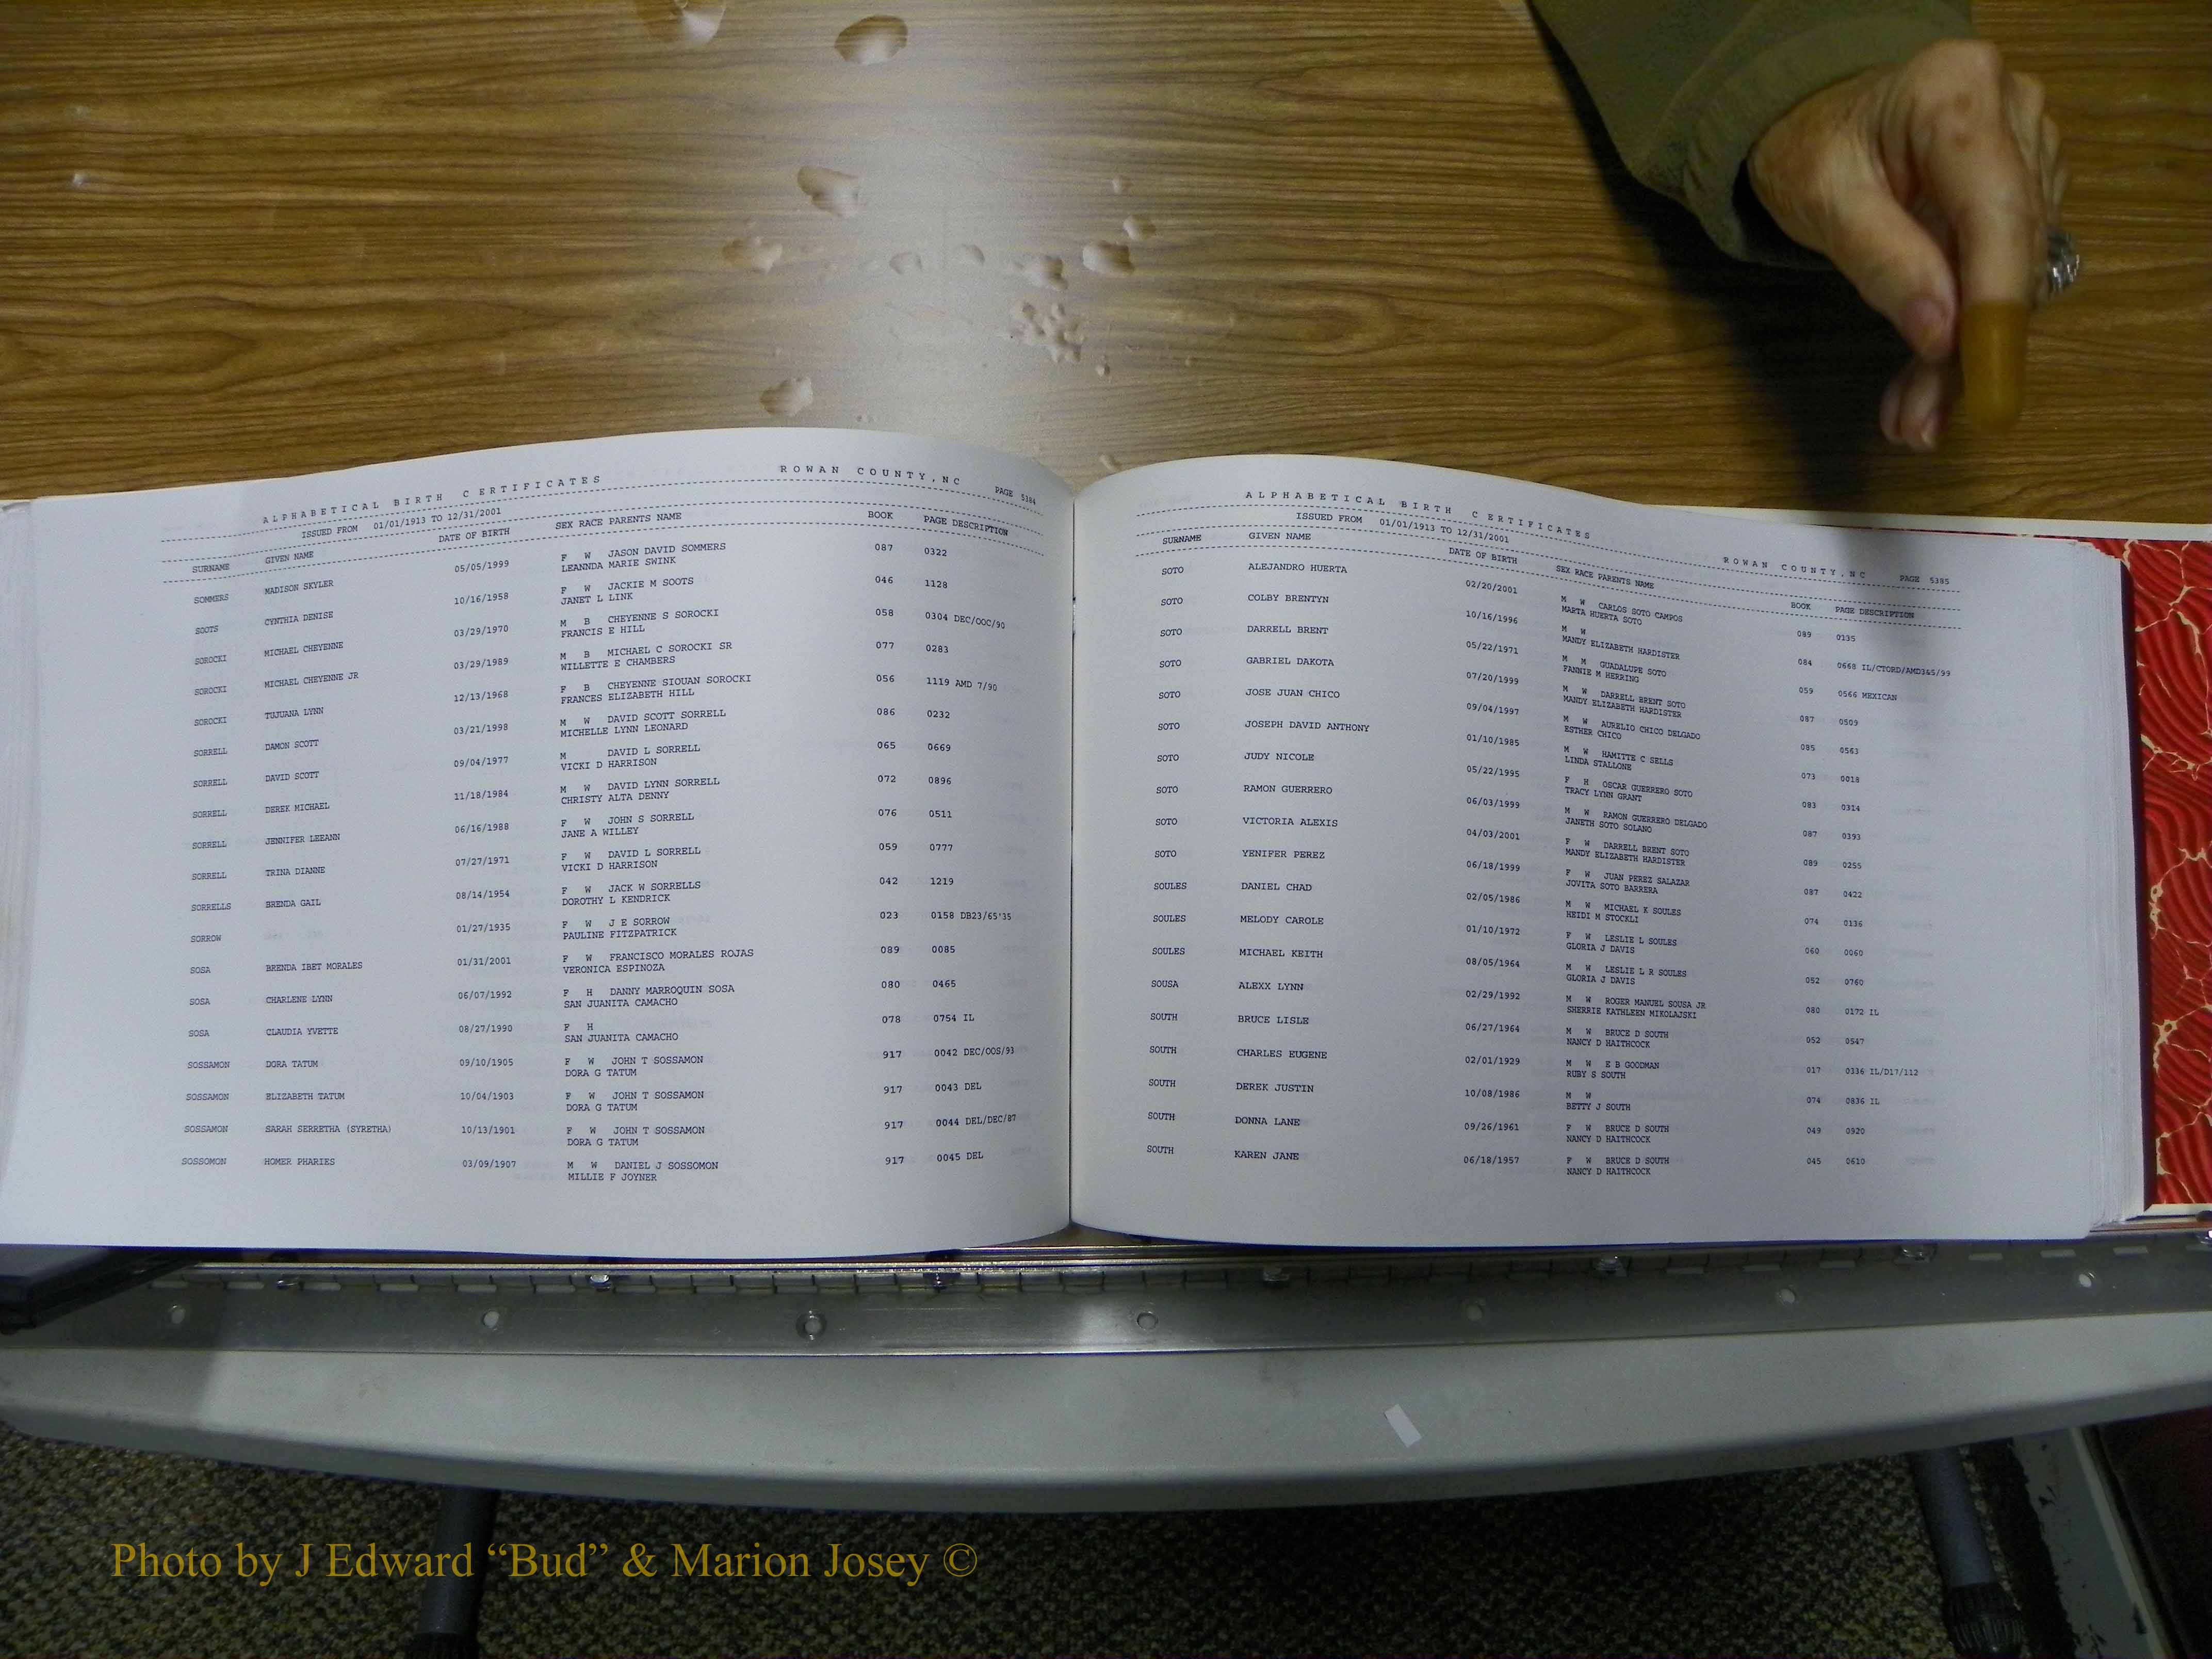 ALPHABETICAL BIRTH CERTIFICATES ROWAN COUNTY,NC PAGE 5384
ISSUED FROM 01/01/1913 TO 12/31/2001
SURNAME GIVEN NAME DATE OF BIRTH SEX RACE PARENTS NAME BOOK PAGE DESCRIPTION
SOMMERS MADISON SKYLER 05/05/1999 F W JASON DAVID SOMMERS 087 0322
LEANNDA MARIE SWINK
SOOTS CYNTHIA DENISE 10/16/1958 F W JACKIE M SOOTS 046 1128
JANET L LINK
SOROCKI MICHAEL CHEYENNE 03/29/1970 M B CHEYENNE S SOROCKI 058 0304 DEC/OOC/90
FRANCIS E HILL
SOROCKI MICHAEL CHEYENNE JR 03/29/1989 M B MICHAEL C SOROCKI SR 077 0283
WILLETTE E CHAMBERS
SOROCKI TUJUANA LYNN 12/13/1968 F B CHEYENNE SIOUAN SOROCKI 056 1119 AMD 7/90
FRANCES ELIZABETH HILL
SORRELL DAMON SCOTT 03/21/1998 M W DAVID SCOTT SORRELL 086 0232
MICHELLE LYNN LEONARD
SORRELL DAVID SCOTT 09/04/1977 M DAVID L SORRELL 065 0669
VICKI D HARRISON
SORRELL DEREK MICHAEL 11/18/1984 M W DAVID LYNN SORRELL 072 0896
CHRISTY ALTA DENNY
SORRELL JENNIFER LEEANN 06/16/1988 F W JOHN S SORRELL 076 0511
JANE A WILLEY
SORRELL TRINA DIANNE 07/27/1971 F W DAVID L SORRELL 059 0777
VICKI D HARRISON
SORRELLS BRENDA GAIL 08/14/1954 F W JACK W SORRELLS 042 1219
DOROTHY L KENDRICK
SORROW 01/27/1935 F W J E SORROW 023 0158 DB23/65'35
PAULINE FITZPATRICK
SOSA BRENDA IBET MORALES 01/31/2001 F W FRANCISCO MORALES ROJAS 089 0085
VERONICA ESPINOZA
SOSA CHARLENE LYNN 06/07/1992 F H DANNY MARROQUIN SOSA 080 0465
SAN JUANITA CAMACHO
SOSA CLAUDIA YVETTE 08/27/1990 F H 078 0754 IL
SAN JUANITA CAMACHO
SOSSAMON DORA TATUM 09/10/1905 F W JOHN T SOSSAMON 917 0042 DEC/OOS/93
DORA G TATUM
SOSSAMON ELIZABETH TATUM 10/04/1903 F W JOHN T SOSSAMON 917 0043 DEL
DORA G TATUM
SOSSAMON SARAH SERRETHA (SYRETHA) 10/13/1901 F W JOHN T SOSSAMON 917 0044 DEL/DEC/87
DORA G TATUM
SOSSOMON HOMER PHARIES 03/09/1907 M W DANIEL J SOSSOMON 917 0045 DEL
MILLIE F JOYNER
ALPHABETICAL BIRTH CERTIFICATES ROWAN COUNTY,NC PAGE 5385
ISSUED FROM 01/01/1913 TO 12/31/2001
SURNAME GIVEN NAME DATE OF BIRTH SEX RACE PARENTS NAME BOOK PAGE DESCRIPTION
SOTO ALEJANDRO HUERTA 02/20/2001 M W CARLOS SOTO CAMPOS 089 0135
MARTA HUERTA SOTO
SOTO COLBY BRENTYN 10/16/1996 M W 084 0668 IL/CTORD/AMD3&5/99
MANDY ELIZABETH HARDISTER
SOTO DARRELL BRENT 05/22/1971 M M GUADALUPE SOTO 059 0566 MEXICAN
FANNIE M HERRING
SOTO GABRIEL DAKOTA 07/20/1999 M W DARRELL BRENT SOTO 087 0509
MANDY ELIZABETH HARDISTER
SOTO JOSE JUAN CHICO 09/04/1997 M W AURELIO CHICO DELGADO 085 0563
ESTHER CHICO
SOTO JOSEPH DAVID ANTHONY 01/10/1985 M W HAMITTE C SELLS 073 0018
LINDA STALLONE
SOTO JUDY NICOLE 05/22/1995 F H OSCAR GUERRERO SOTO 083 0314
TRACY LYNN GRANT
SOTO RAMON GUERRERO 06/03/1999 M W RAMON GUERRERO DELGADO 087 0393
JANETH SOTO SOLANO
SOTO VICTORIA ALEXIS 04/03/2001 F W DARRELL BRENT SOTO 089 0255
MANDY ELIZABETH HARDISTER
SOTO YENIFER PEREZ 06/18/1999 F W JUAN PEREZ SALAZAR 087 0422
JOVITA SOTO BARRERA
SOULES DANIEL CHAD 02/05/1986 M W MICHAEL K SOULES 074 0136
HEIDI M STOCKLI
SOULES MELODY CAROLE 01/10/1972 F W LESLIE L SOULES 060 0060
GLORIA J DAVIS
SOULES MICHAEL KEITH 08/05/1964 M W LESLIE L R SOULES 052 0760
GLORIA J DAVIS
SOUSA ALEXX LYNN 02/29/1992 M W ROGER MANUEL SOUSA JR 080 0172 IL
SHERRIE KATHLEEN MIKOLAJSKI
SOUTH BRUCE LISLE 06/27/1964 M W BRUCE D SOUTH 052 0547
NANCY D HAITHCOCK
SOUTH CHARLES EUGENE 02/01/1929 M W E B GOODMAN 017 0336 IL/D17/112
RUBY S SOUTH
SOUTH DEREK JUSTIN 10/08/1986 M W 074 0836 IL
BETTY J SOUTH
SOUTH DONNA LANE 09/26/1961 F W BRUCE D SOUTH 049 0920
NANCY D HAITHCOCK
SOUTH KAREN JANE 06/18/1957 F W BRUCE D SOUTH 045 0610
NANCY D HAITHCOCK
Photo by J Edward “Bud” & Marion Josey ©